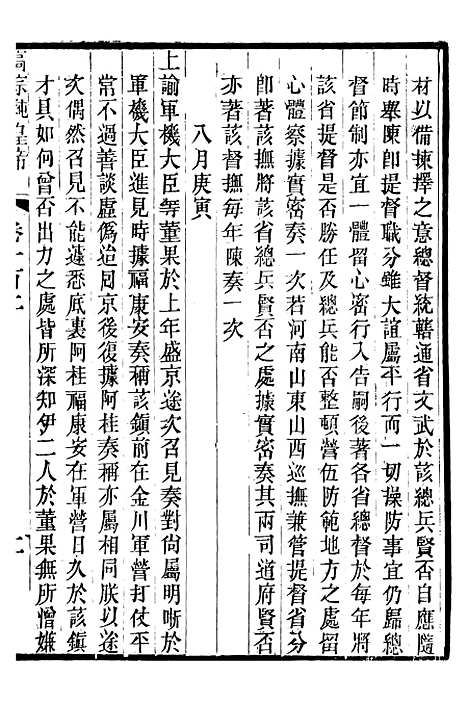 材以備揀擇之意總督統轄通省文武於該總兵賢否自應隨
時舉陳卽提督職分雖大誼屬平行而一切操防事宜仍歸總
督節制亦宜一體留心密行入告嗣後著各省總督於每年將
該省提督是否勝任及總兵能否整頓營伍防範地方之處留
心體察據實密奏一次若河南山東山西巡撫兼管提督者
卽著該撫將該省總兵賢否之處據實密奏其兩司道府賢否
亦著該督撫每年陳奏一次
八月庚寅
上諭軍機大臣等董果於上年盛京途次召見奏對尙屬明晰於
軍機大臣進見時據福康安奏稱該鎮前在金川軍營打仗平
常不過善談虛僞迨囘京後復據阿桂奏稱亦屬相同朕以途
次偶然召見不能遽悉底裏阿桂福康安在軍營日久於該鎮
才具如何曾否出力之處皆所深知伊二人於董果無所憎嫌
高宗純皇帝 卷一百二